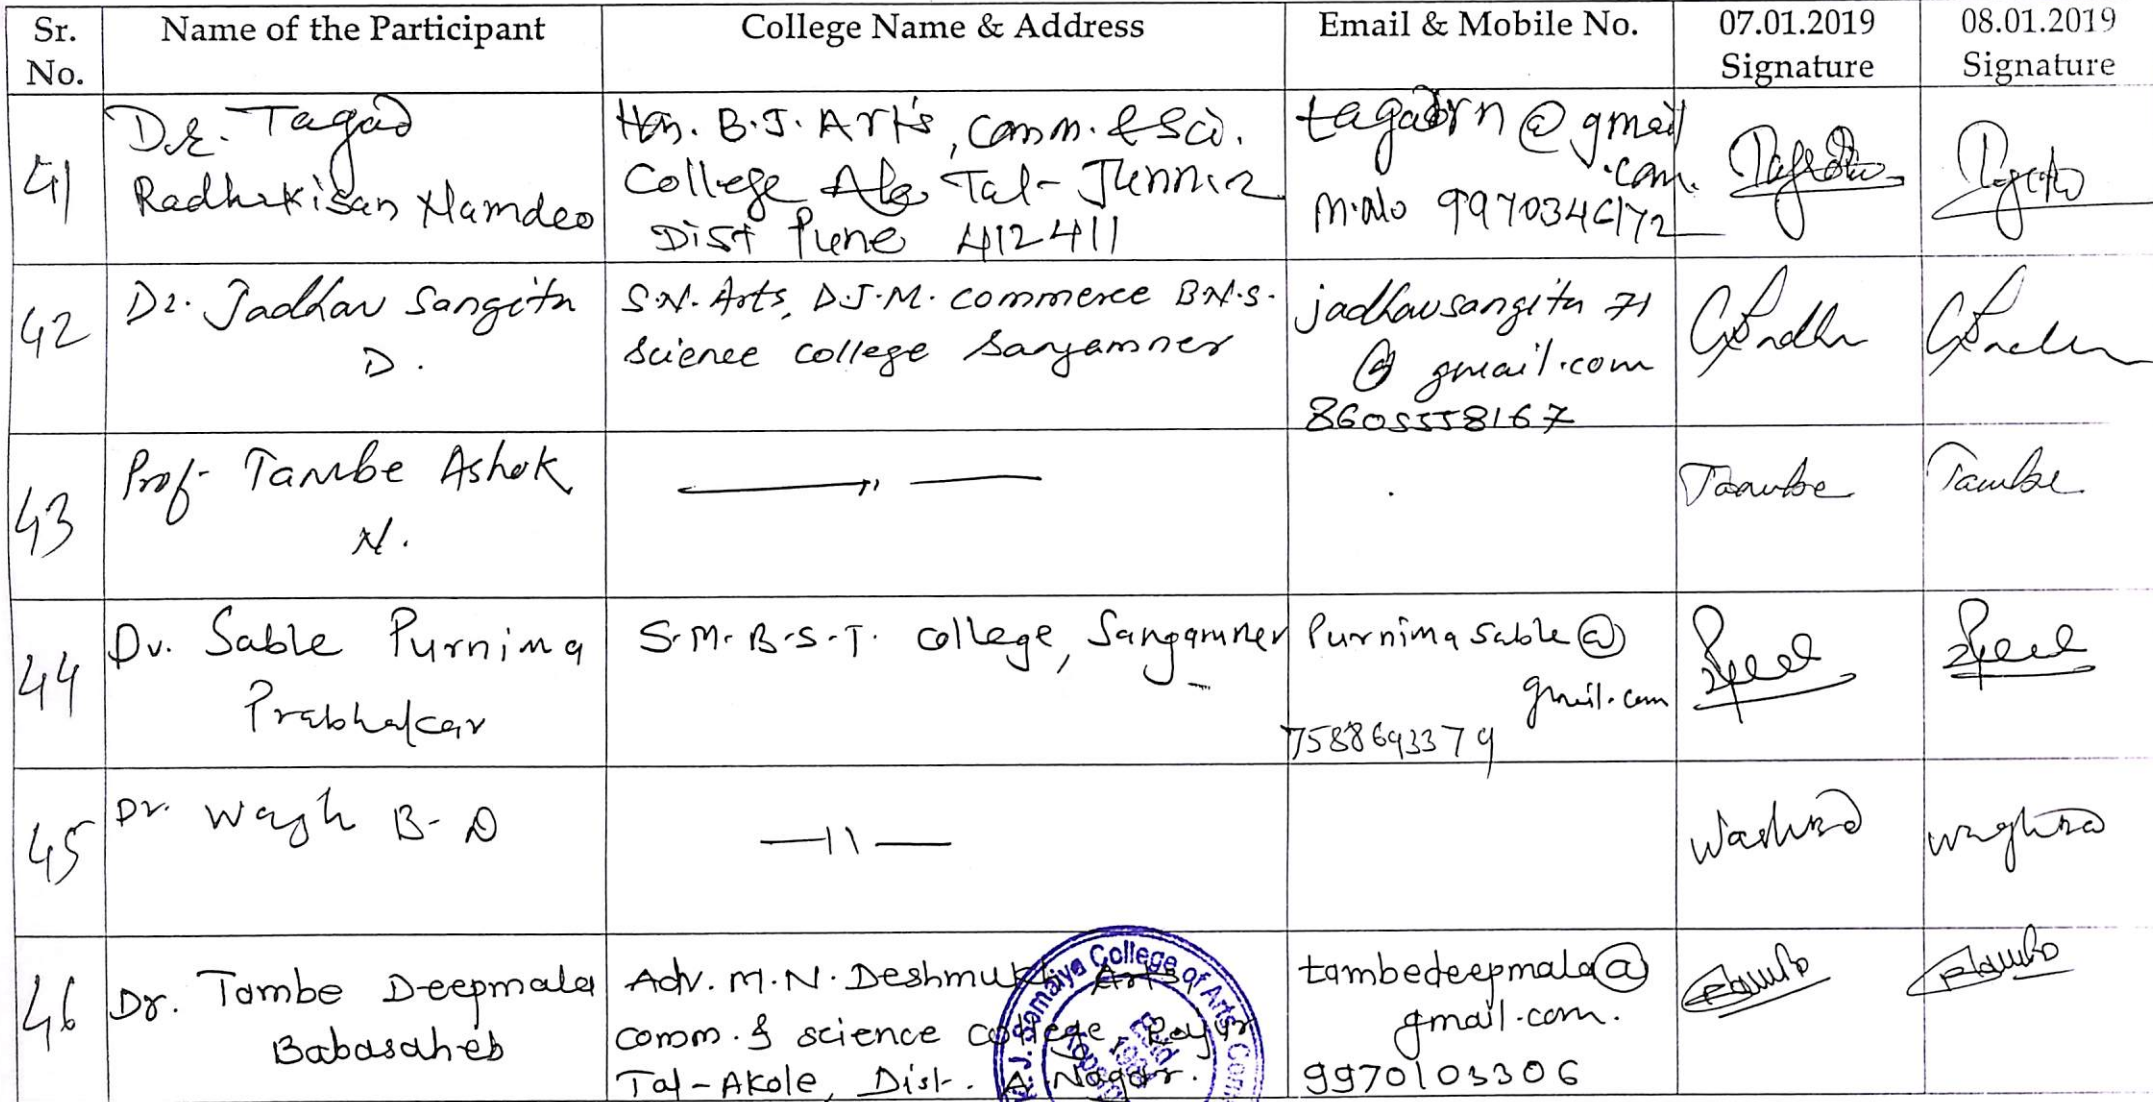 Sr. No.
Name of the Participant
College Name & Address
Email & Mobile No.
07.01.2019 Signature
08.01.2019 Signature
41
Dr. Tagad
Radhakisan Namdeo
Hon. B.J. Art's, Comm. & Sci.
College Ale Tal- Junnar
Dist Pune 412411
tagadrn@gmail
.com.
M.No 9970346172
42
Dr. Jadhav Sangita
D.
S.N. Arts, D.J.M. Commerce B.N.S.
Science College Sangamner
jadhavsangita71
@gmail.com
8605558167
43
Prof. Tambe Ashok
N.
— " —
Tambe
Tambe
44
Dr. Sable Purnima
Prabhakar
S.M.B.S.T. College, Sangamner
Purnimasable@
gmail.com
7588693379
45
Dr. Wagh B.D
— 11 —
WaghBD
WaghBD
46
Dr. Tambe Deepmala
Babasaheb
Adv. M.N. Deshmukh Arts
Comm. & Science College, Rajur
Tal-Akole, Dist. A.Nagar.
tambedeepmala@
gmail.com.
9970103306
J. Somaiya College of Arts, Com